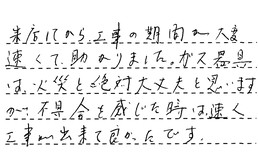 来店してから、工事の期間が大変
速くて助かりました。ガス器具
は、火災と絶対大丈夫と思います
が、不具合を感じた時は、速く
工事が出来て良かったです。